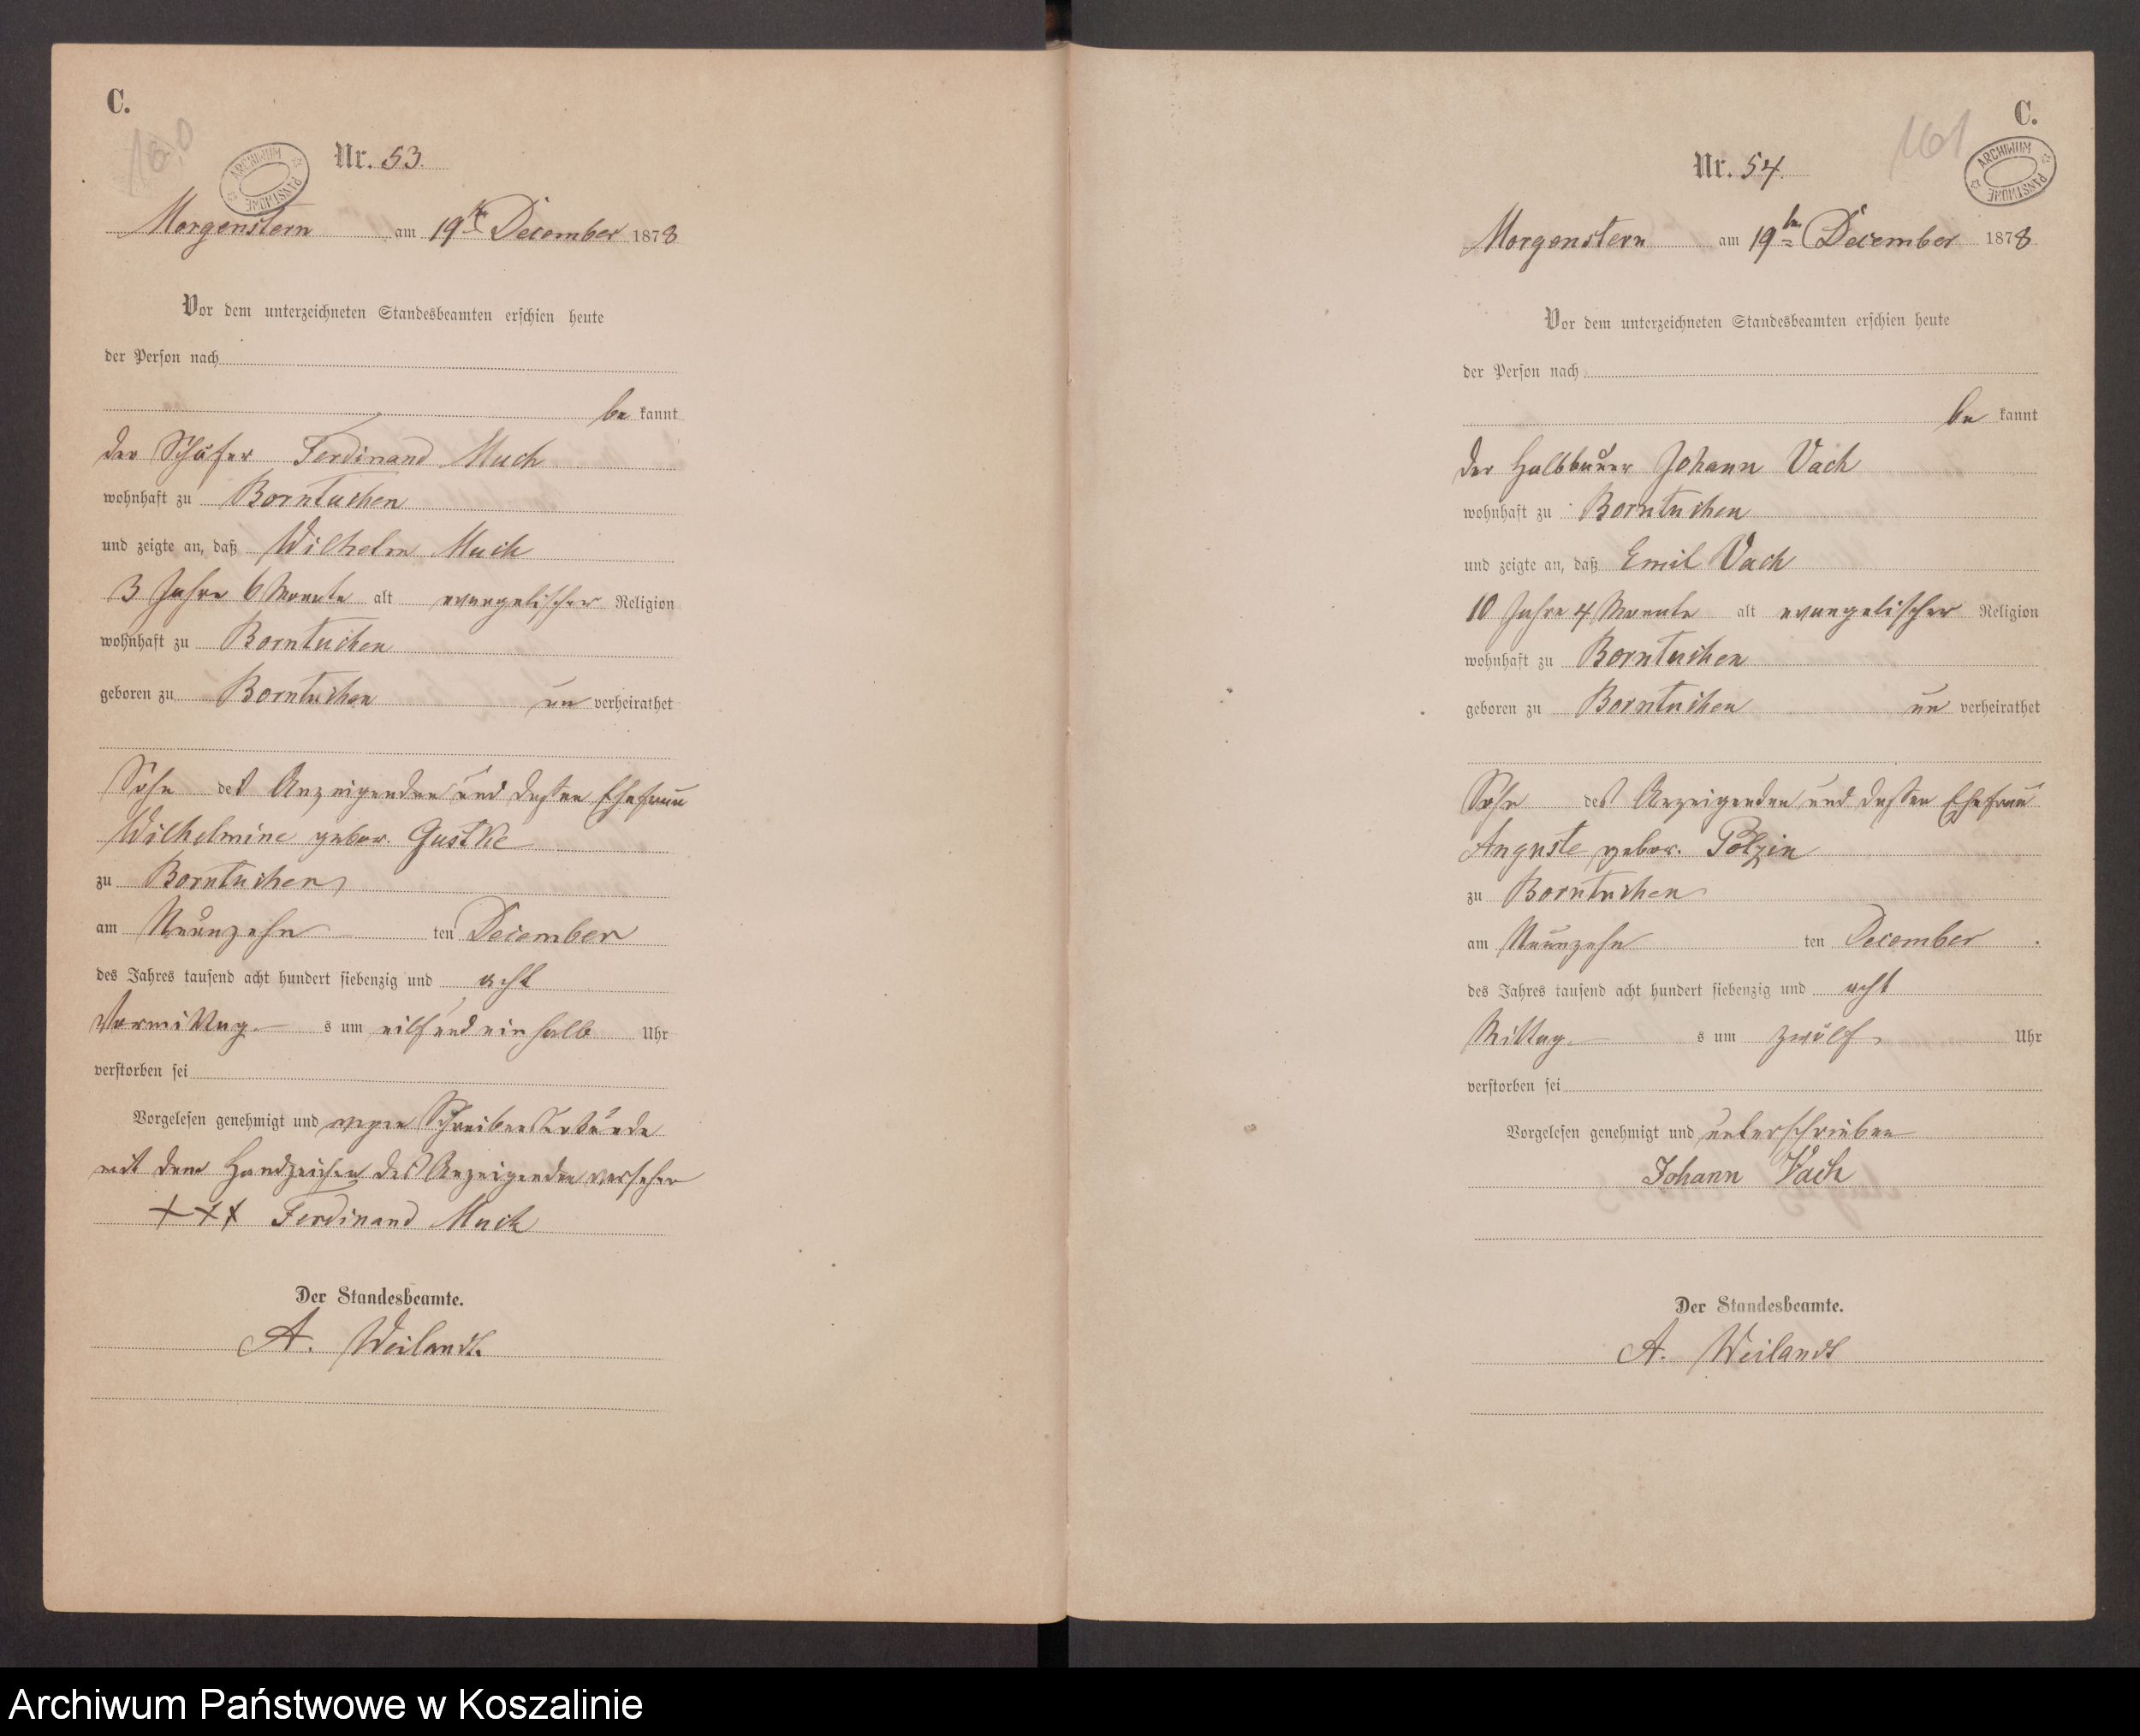 C.
160
ARCHIWUM PAŃSTWOWE
Nr. 53.
Morgenstern am 19ten December 1878
Vor dem unterzeichneten Standesbeamten erschien heute
der Person nach
be kannt
der Schäfer Ferdinand Much
wohnhaft zu Borntuchen
und zeigte an, daß Wilhelm Much
3 Jahre 6 Monate alt evangelischer Religion
wohnhaft zu Borntuchen
geboren zu Borntuchen un verheirathet
Sohn des Anzeigenden und dessen Ehefrau
Wilhelmine gebor. Gustke
zu Borntuchen
am Neunzehn ten December
des Jahres tausend acht hundert siebenzig und acht
Vormittag s um eilf und ein halb Uhr
verstorben sei
Vorgelesen genehmigt und wegen Schreibensunkunde
mit dem Handzeichen des Anzeigenden versehen
+++ Ferdinand Much
Der Standesbeamte.
A. Weilandt.
C.
161
ARCHIWUM PAŃSTWOWE
Nr. 54.
Morgenstern am 19ten December 1878
Vor dem unterzeichneten Standesbeamten erschien heute
der Person nach
be kannt
der Halbbauer Johann Vach
wohnhaft zu Borntuchen
und zeigte an, daß Emil Vach
10 Jahre 4 Monate alt evangelischer Religion
wohnhaft zu Borntuchen
geboren zu Borntuchen un verheirathet
Sohn des Anzeigenden und dessen Ehefrau
Auguste gebor. Polzin
zu Borntuchen
am Neunzehn ten December
des Jahres tausend acht hundert siebenzig und acht
Mittag s um zwölf Uhr
verstorben sei
Vorgelesen genehmigt und unterschrieben
Johann Vach
Der Standesbeamte.
A. Weilandt
Archiwum Państwowe w Koszalinie